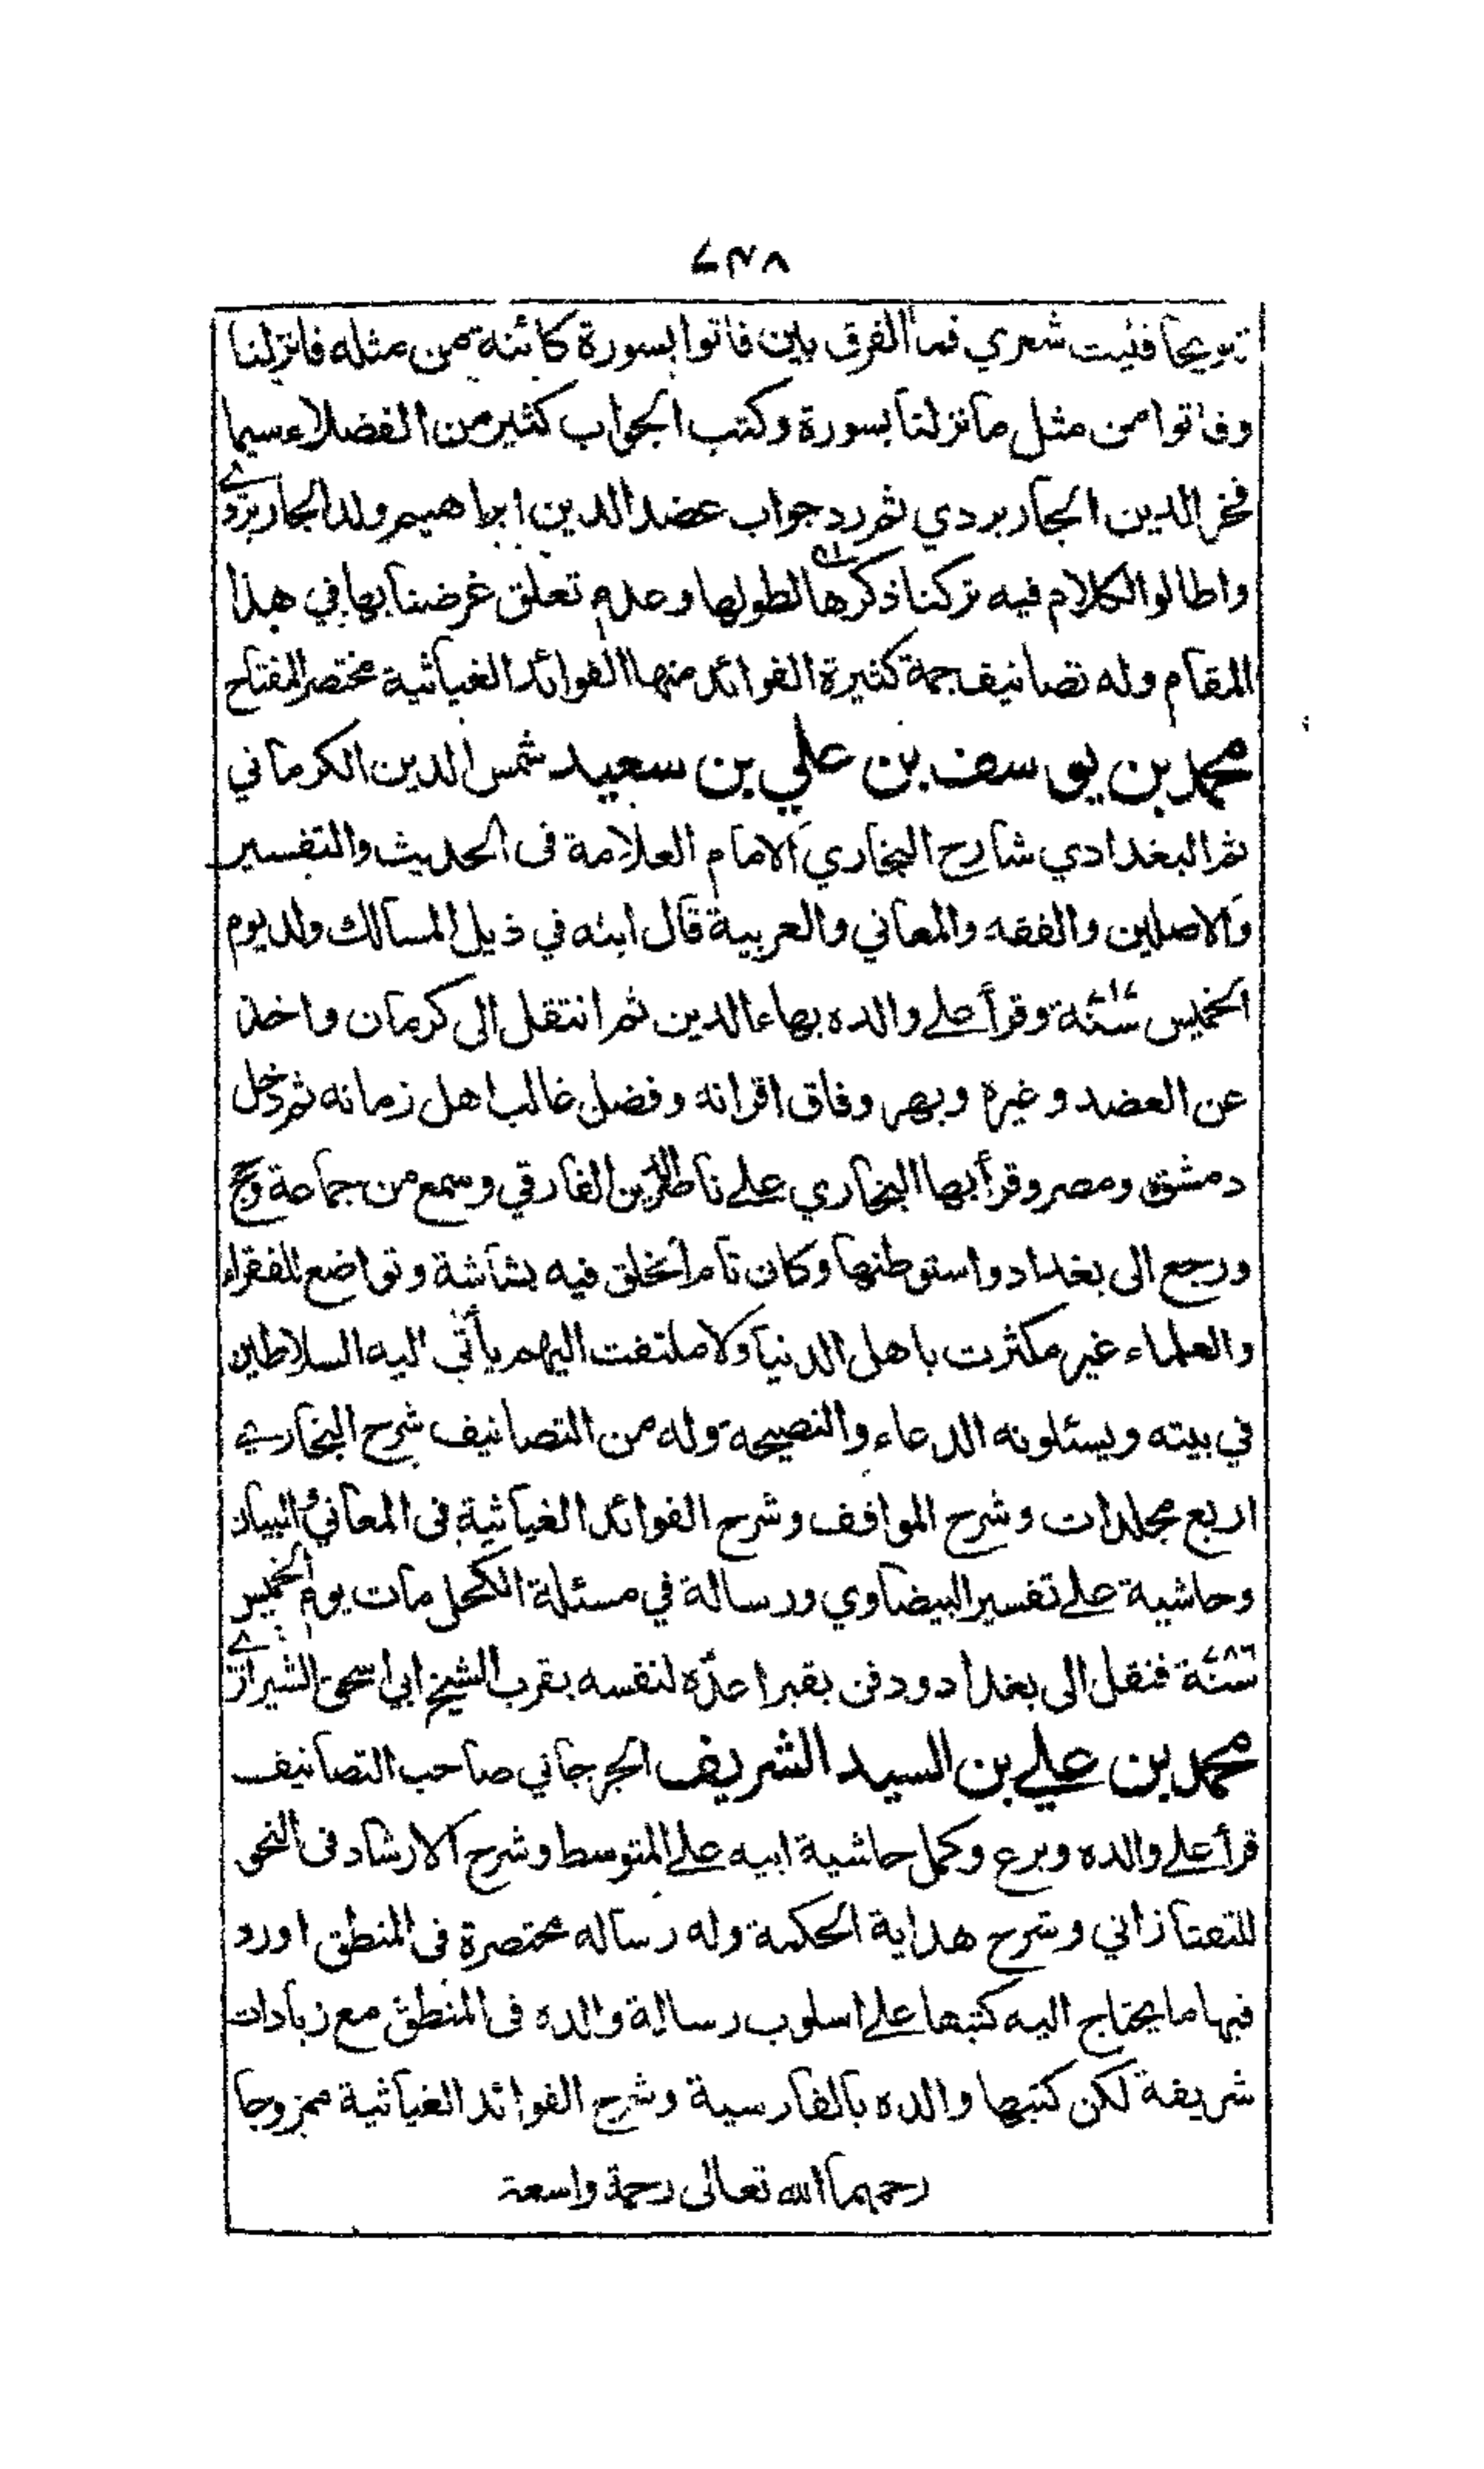 ٧٣٨
تبويحا فليت شعري فما الفرق بين فاتوا بسورة كائنة من مثله فانزلنا
وفاتوا من مثل ما نزلنا بسورة وكتب الجواب كثير من الفضلاء سيما
فخر الدين الجاربردي ثم رد جواب عضد الدين ابراهيم ولد الجاربردي
واطالوا الكلام فيه تركنا ذكرها لطولها وعدم تعلق غرضنا بها في هذا
المقام وله تصانيف جمة كثيرة الفوائد منها الفوائد الغياثية مختصر المفتاح
محمد بن يوسف بن علي بن سعيد شمس الدين الكرماني
ثم البغدادي شارح البخاري الامام العلامة فى الحديث والتفسير
والاصلين والفقه والمعاني والعربية قال ابنه في ذيل المسالك ولد يوم
الخميس سنة ٧١٧ وقرأ على والده بهاء الدين ثم انتقل الى كرمان واخذ
عن العضد وغيره وبهر وفاق اقرانه وفضل غالب اهل زمانه ثم دخل
دمشق ومصر وقرأ بها البخاري على ناصر الدين الفارقي وسمع من جماعة وحج
ورجع الى بغداد واستوطنها وكان تام الخلق فيه بشاشة وتواضع للفقراء
والعلماء غير مكترث باهل الدنيا ولا ملتفت اليهم يأتى اليه السلاطين
في بيته ويسئلونه الدعاء والنصيحة وله من التصانيف شرح البخاري
اربع مجلدات وشرح المواقف وشرح الفوائد الغياثية فى المعاني والبيان
وحاشية على تفسير البيضاوي ورسالة في مسئلة الكحل مات يوم الخميس
سنة ٧٨٦ فنقل الى بغداد ودفن بقبر اعده لنفسه بقرب الشيخ ابي اسحق الشيرازي
محمد بن علي بن السيد الشريف الجرجاني صاحب التصانيف
قرأ على والده وبرع وكمل حاشية ابيه على المتوسط وشرح الارشاد فى النحو
للتفتازاني وشرح هداية الحكمة وله رساله مختصرة فى المنطق اورد
فيها ما يحتاج اليه كتبها على اسلوب رسالة والده فى المنطق مع زيادات
شريفة لكن كتبها والده بالفارسية وشرح الفوائد الغياثية ممزوجا
رحمهما الله تعالى رحمة واسعة